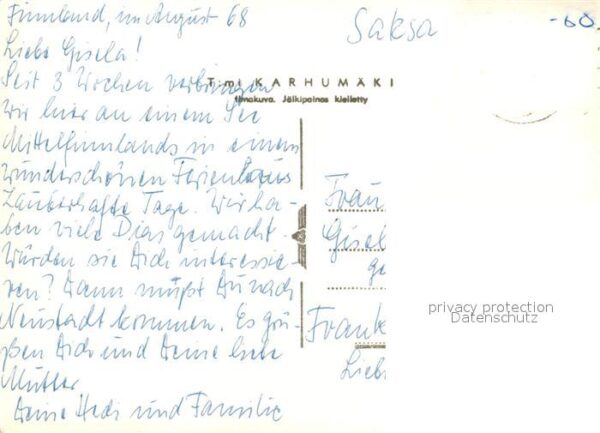 Finnland, im August 68
Liebe Gisela!
Seit 3 Wochen verbringen
wir hier an einem See
Mittelfinnlands in einem
wunderschönen Ferienhaus
Zauberhafte Tage. Wir ha-
ben viele Dias gemacht.
Würden sie Dich interessie-
ren? Dann mußt Du nach
Neustadt kommen. Es grü-
ßen Dich und Deine liebe
Mutter
Deine Hedi und Familie
Saksa
-60
T:mi KARHUMÄKI
Ilmakuva. Jälkipainos kielletty
Frau
Gisel
Ge
Frank
Lieb
privacy protection
Datenschutz